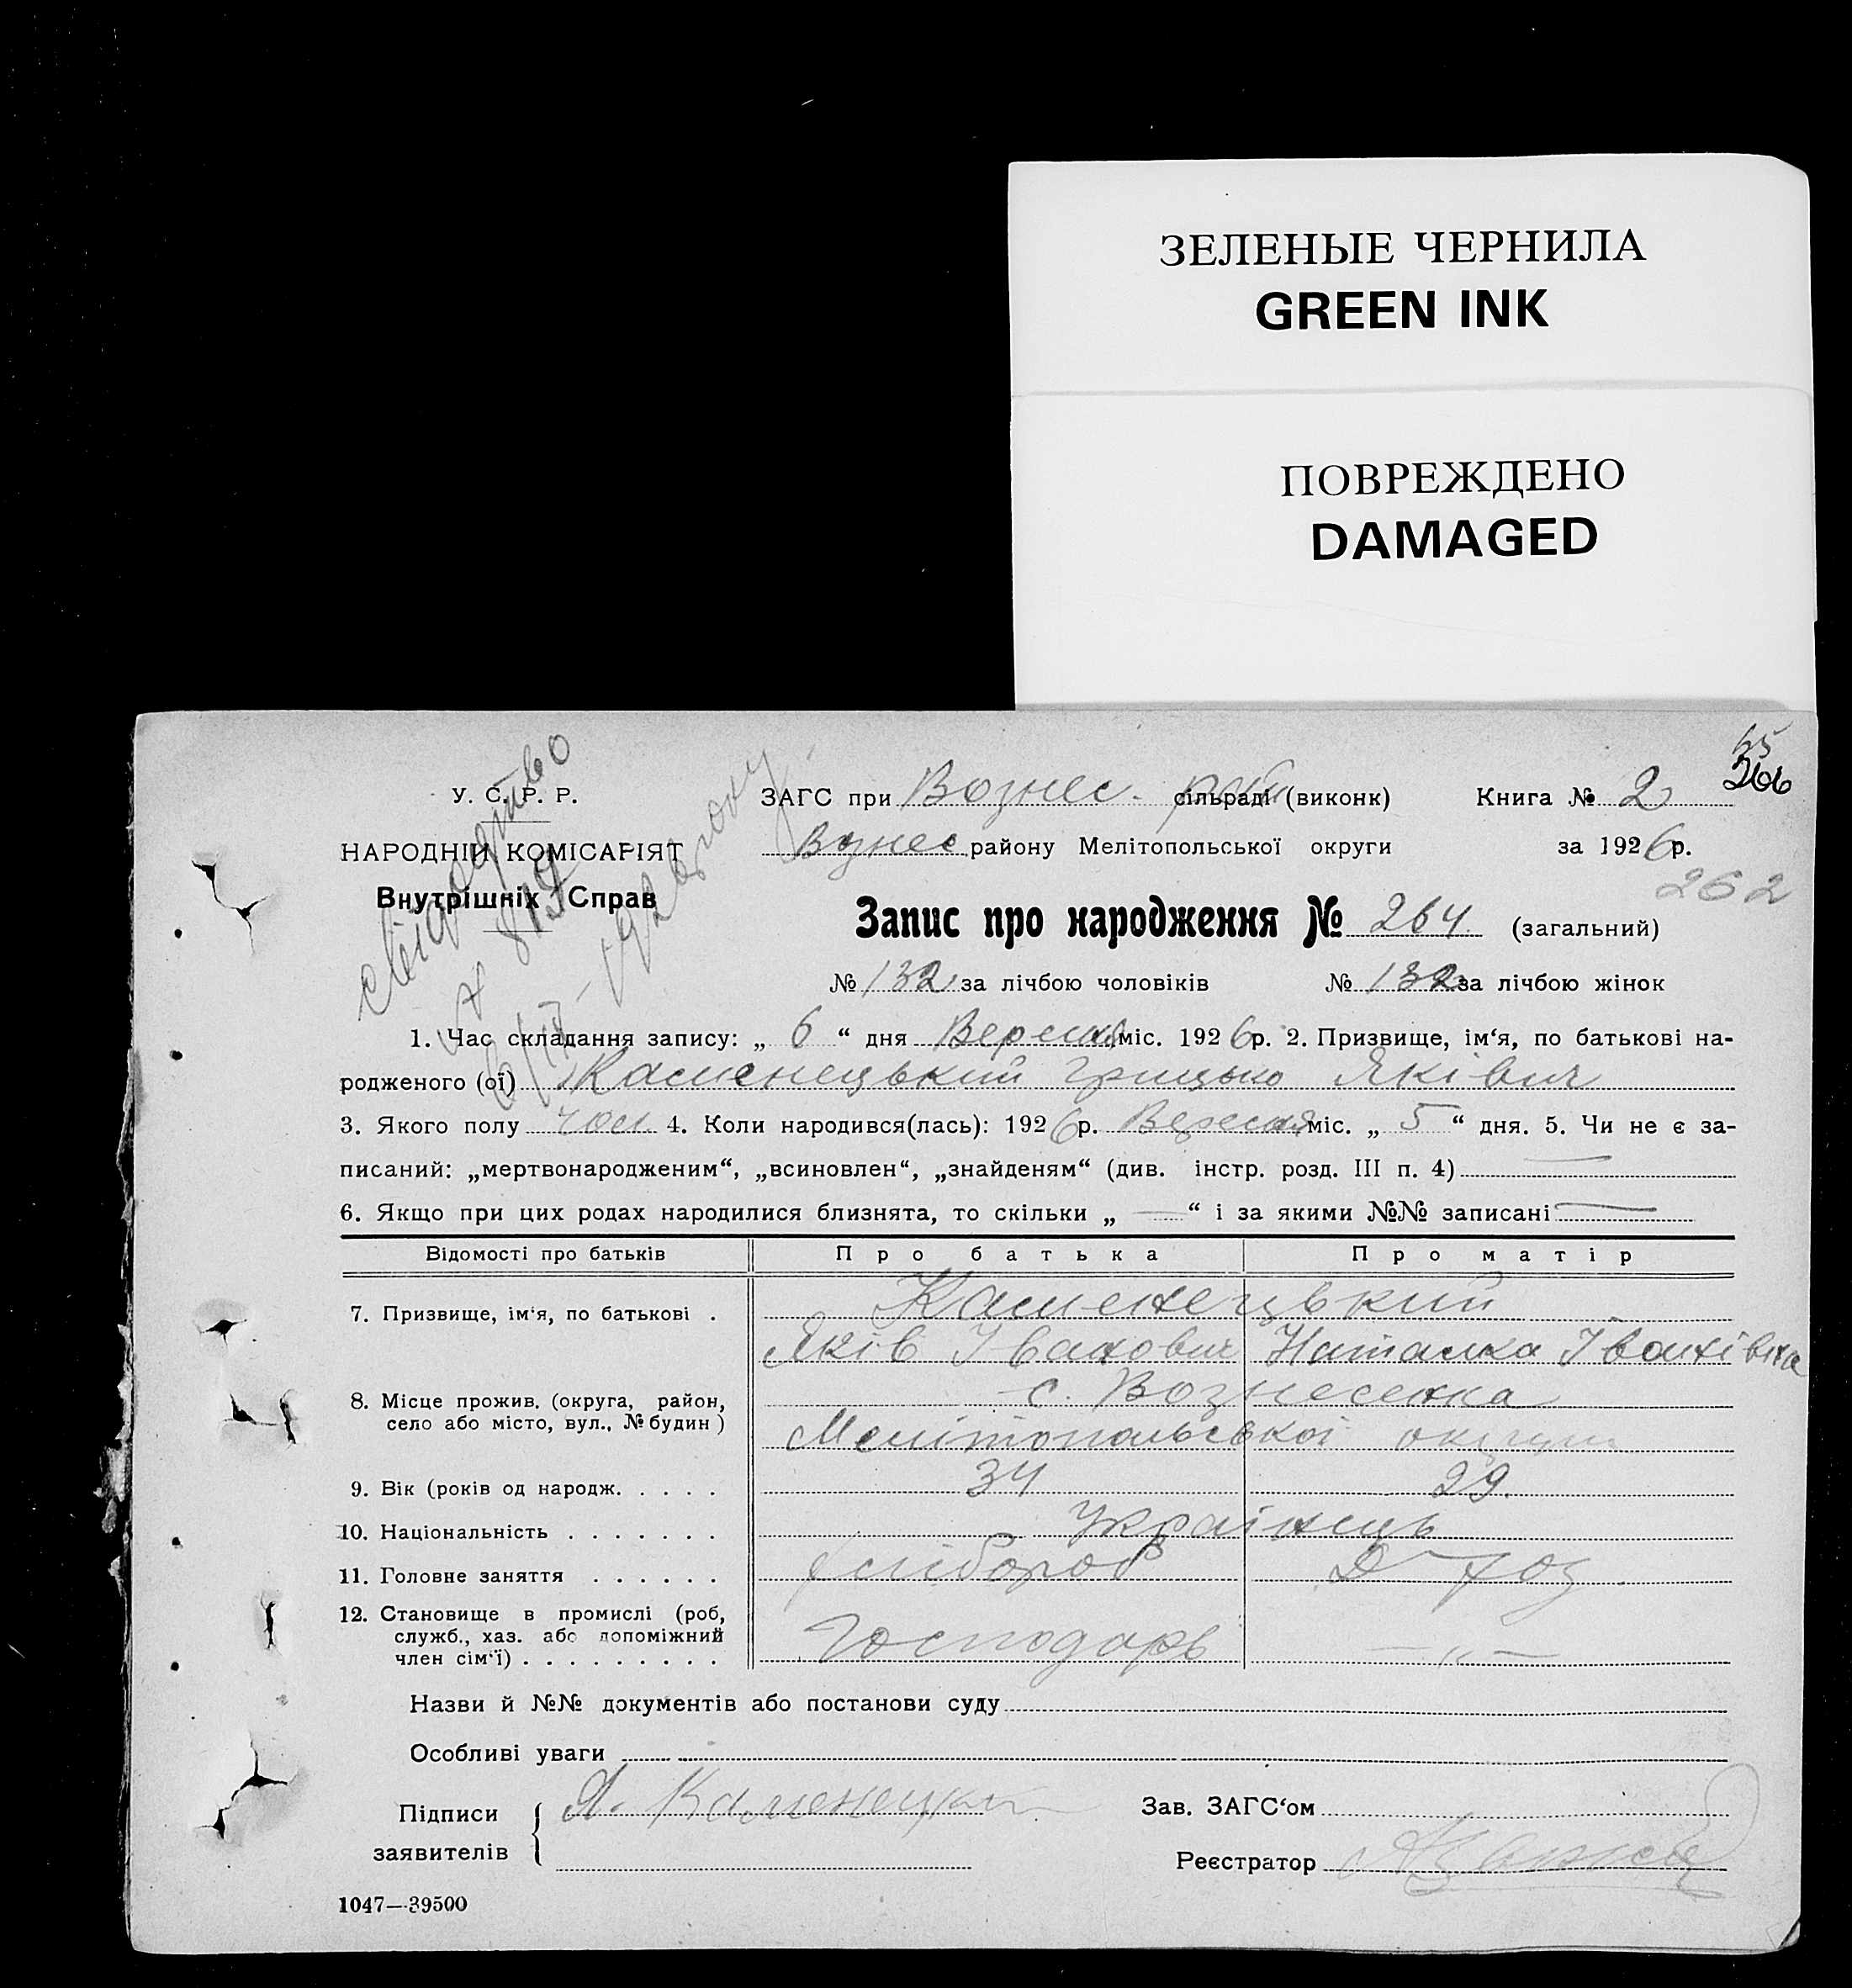 ЗЕЛЕНЫЕ ЧЕРНИЛА
GREEN INK
ПОВРЕЖДЕНО
DAMAGED
65
266
У. С. Р. Р.
НАРОДНІЙ КОМІСАРІЯТ
Внутрішніх Справ
свідоцтво
№ 819
6/IX - 1926 року
ЗАГС при Вознес. рай сільраді (виконк) Книга № 2
Вознес району Мелітопольської округи за 1926 р.
262
Запис про народження № 264 (загальний)
№ 132 за лічбою чоловіків № 132 за лічбою жінок
1. Час складання запису: „ 6 “ дня Вересня міс. 1926 р. 2. Призвище, ім‘я, по батькові на-
родженого (ої) Каменецький Грицько Яківич
3. Якого полу чол. 4. Коли народився(лась): 1926 р. Вересня міс. „ 5 “ дня. 5. Чи не є за-
писаний: „мертвонародженим“, „всиновлен“, „знайденям“ (див. інстр. розд. III п. 4) —
6. Якщо при цих родах народилися близнята, то скільки „ — “ і за якими №№ записані —
Відомості про батьків Про батька Про матір
7. Призвище, ім‘я, по батькові . Каменецький
Яків Іванович Наталка Іванівна
8. Місце прожив. (округа, район, с. Вознесенка
село або місто, вул., № будин ) Мелітопольської округи
9. Вік (років од народж. . . . . 34 29.
10. Національність . . . . . . . Українець
11. Головне заняття . . . . . . Хлібороб Д хоз
12. Становище в промислі (роб,
служб., хаз. або допоміжний Господарь — „ —
член сім‘ї) . . . . . . . . .
Назви й №№ документів або постанови суду
Особливі уваги
Підписи Я. Каменецкий Зав. ЗАГС‘ом
заявителів Реєстратор
1047—39500